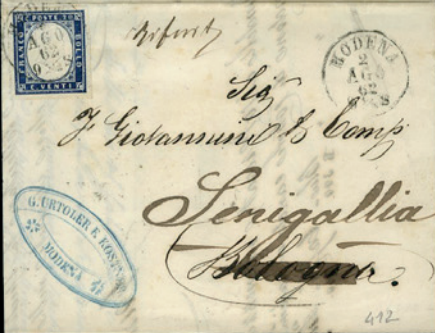 FRANCO POSTE 20 BOLLO C. VENTI
AGO
62
MODENA
2
AGO
62
Sig
F. Giovannini & Comp
Senigallia
Bologna.
G. URTOLER E
MODENA
412